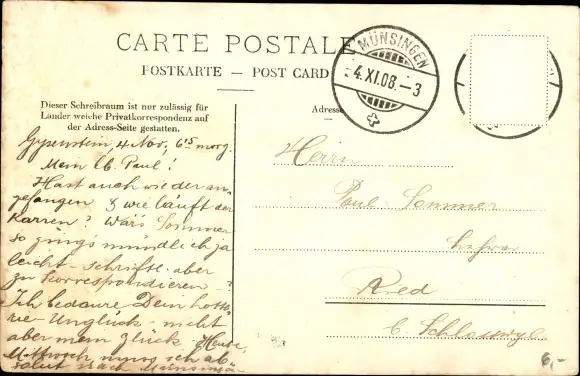 CARTE POSTALE
POSTKARTE — POST CARD
MÜNSINGEN
4.XI.08.–3
Dieser Schreibraum ist nur zulässig für
Länder welche Privatkorrespondenz auf
der Adress-Seite gestatten.
Adresse
4 Nov, 6 15 morg.
Mein lb. Paul!
Hast auch wieder an-
gefangen & wie läuft der
Karren? Wärs Sommer
so ging's mündlich ja
leicht - schriftl. aber
zu korrespondieren - ?
Ich bedaure Dein
Unglück, nicht
aber mein Glück. Heute,
Mittwoch muss ich ab-
nach
Herrn
Paul Sommer
Lehrer
Ried
b. Schlosswyl
6,-